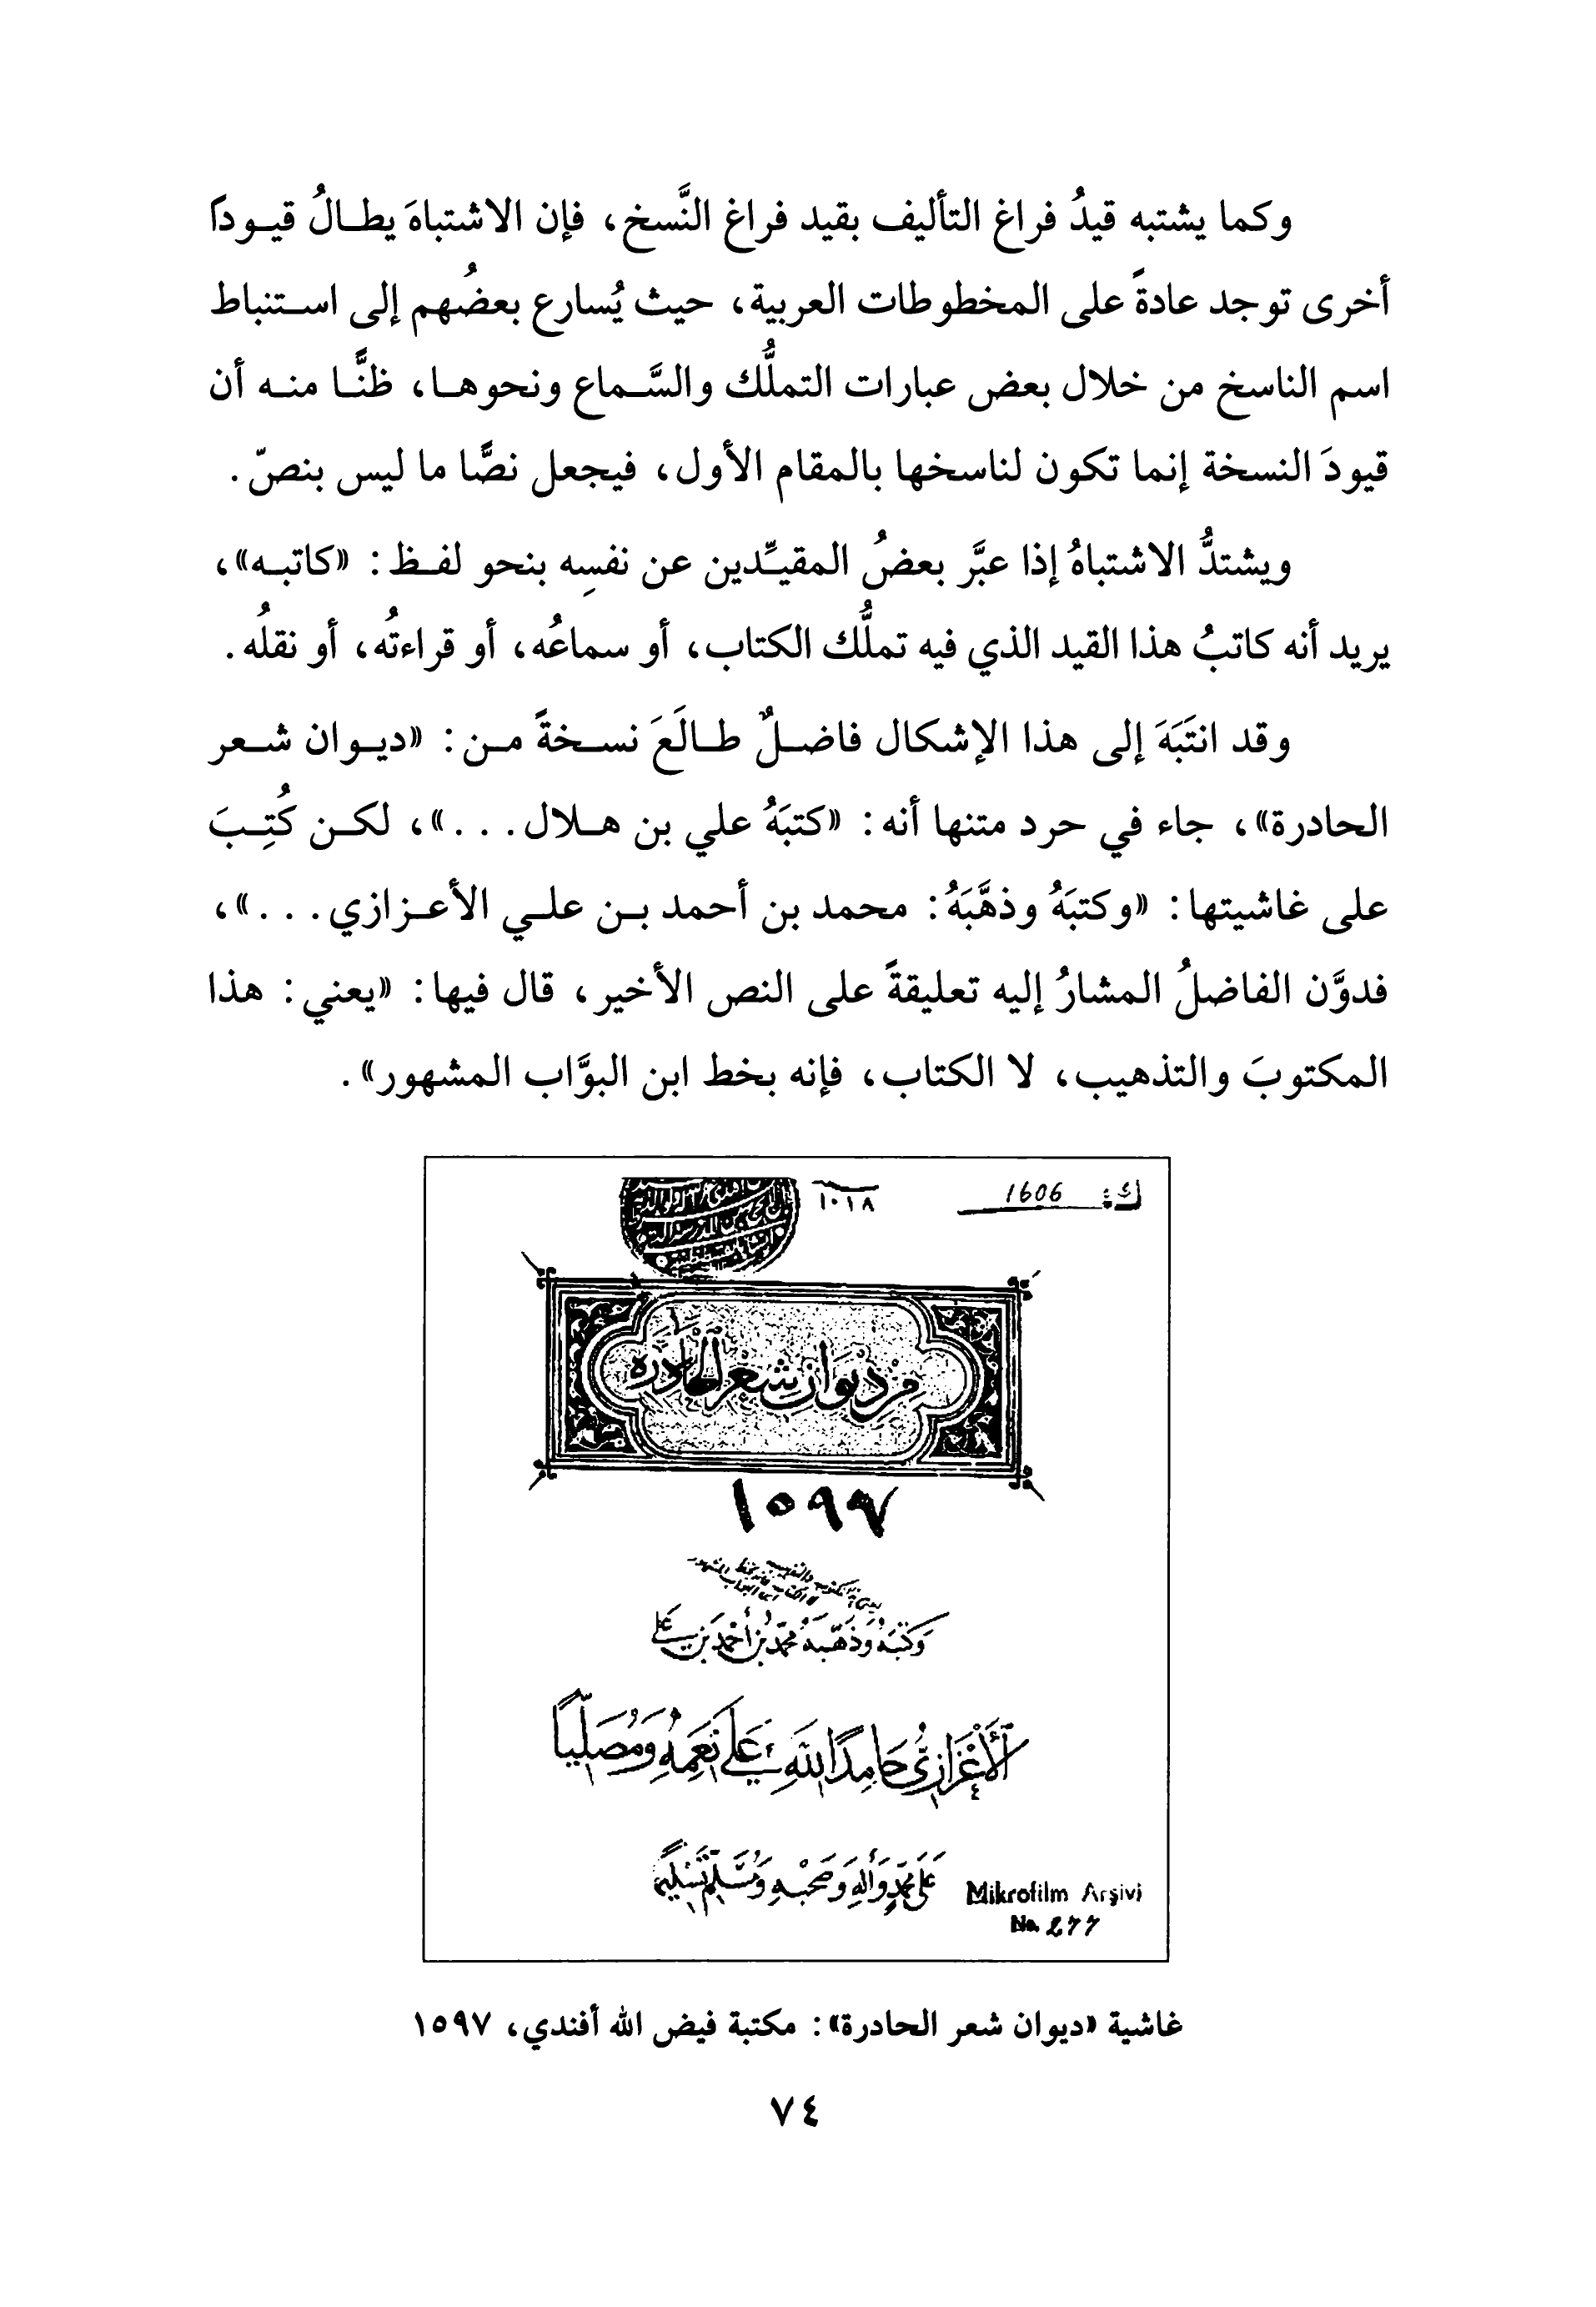 وكما يشتبه قيدُ فراغ التأليف بقيد فراغ النَّسخ، فإن الاشتباهَ يطـالُ قيـودًا
أخرى توجد عادةً على المخطوطات العربية، حيث يُسارع بعضُهم إلى استنباط
اسم الناسخ من خلال بعض عبارات التملُّك والسَّماع ونحوهـا، ظنًّـا منـه أن
قيودَ النسخة إنما تكون لناسخها بالمقام الأول، فيجعل نصًّا ما ليس بنصّ.
ويشتدُّ الاشتباهُ إذا عبَّر بعضُ المقيِّدين عن نفسِه بنحو لفـظ: «كاتبـه»،
يريد أنه كاتبُ هذا القيد الذي فيه تملُّك الكتاب، أو سماعُه، أو قراءتُه، أو نقلُه.
وقد انتَبَهَ إلى هذا الإشكال فاضـلٌ طـالَعَ نسـخةً مـن: «ديـوان شـعر
الحادرة»، جاء في حرد متنها أنه: «كتبَهُ علي بن هـلال...»، لكـن كُتِـبَ
على غاشيتها: «وكتبَهُ وذهَّبَهُ: محمد بن أحمد بـن علـي الأعـزازي...»،
فدوَّن الفاضلُ المشارُ إليه تعليقةً على النص الأخير، قال فيها: «يعني: هذا
المكتوبَ والتذهيب، لا الكتاب، فإنه بخط ابن البوَّاب المشهور».
ك: 1606
١٠١٨
من ديوان شعر الحادره
١٥٩٧
وَكَتَبَهُ وَذَهَّبَهُ مُحَمَّد بنُ أَحْمَد بنِ عَلي
الأَعْزَازِيُّ حَامِدًا لِلَّهِ عَلَى نِعَمِهِ وَمُصَلِّيًا
عَلَى مُحَمَّدٍ وَآلِهِ وَصَحْبِهِ وَمُسَلِّمًا تَسْلِيمًا
Mikrofilm Arşivi
No. 277
غاشية «ديوان شعر الحادرة»: مكتبة فيض الله أفندي، ١٥٩٧
٧٤